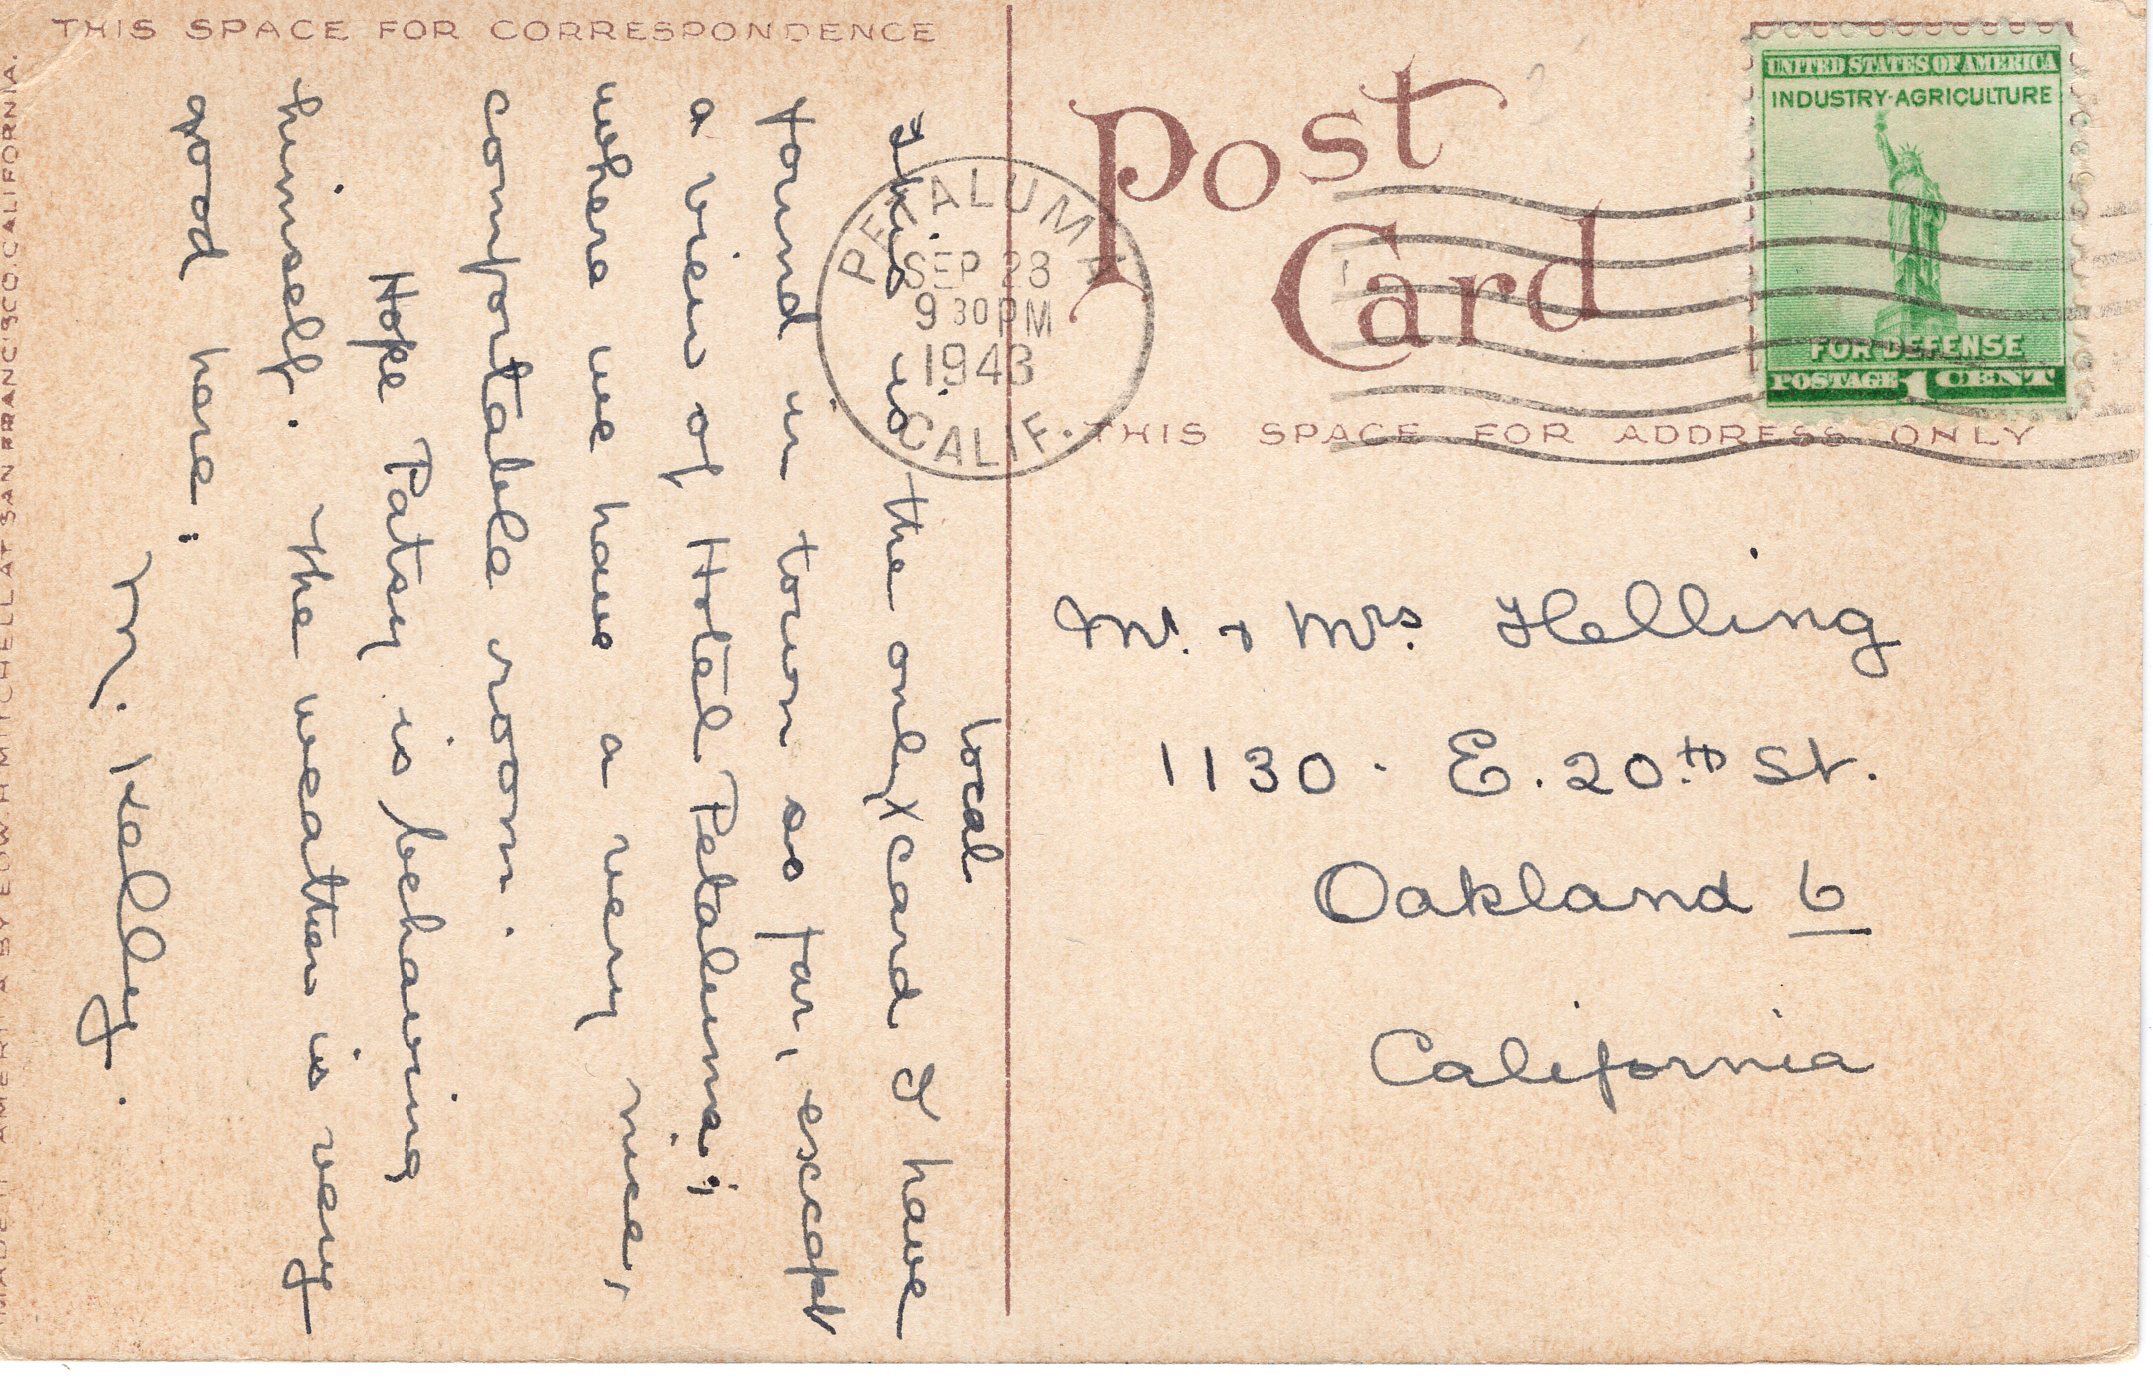 THIS SPACE FOR CORRESPONDENCE
Post
Card
UNITED STATES OF AMERICA
INDUSTRY·AGRICULTURE
FOR DEFENSE
POSTAGE 1 CENT
PETALUMA
SEP 28
9 30 PM
1943
CALIF.
THIS SPACE FOR ADDRESS ONLY
local
This is the only x card I have
found in town so far, except
a view of Hotel Petaluma;
where we have a very nice,
comfortable room.
Hope Patsy is behaving
himself. The weather is very
good here:
M. Kelley.
Mr. + Mrs. Helling
1130 · E. 20th St.
Oakland 6
California
MADE IN AMERICA BY EDW. H. MITCHELL AT SAN FRANCISCO, CALIFORNIA.